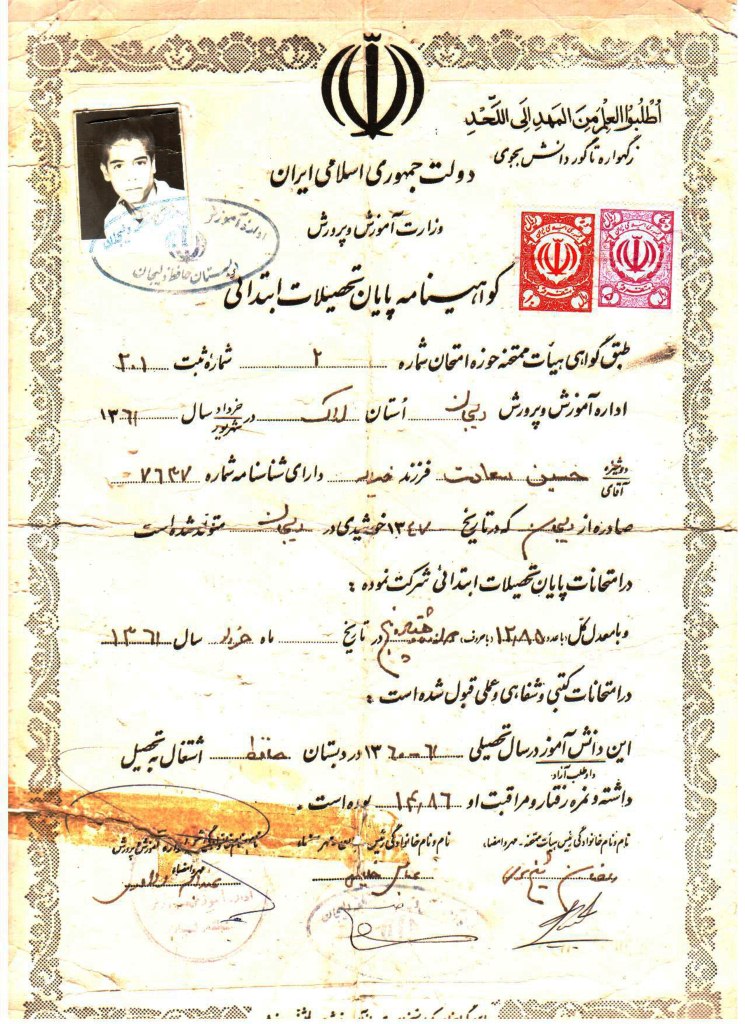 اُطْلُبُوا العِلْمَ مِنَ المَهدِ اِلَی اللَّحَدِ
زگهواره تا گور دانش بجوی
دولت جمهوری اسلامی ایران
وزارت آموزش و پرورش
اداره آموزش
دبستان حافظ دلیجان
گواهینامه پایان تحصیلات ابتدائی
طبق گواهی هیأت ممتحنه حوزه امتحان شماره ۲ شماره ثبت ۲۰۱
اداره آموزش و پرورش دلیجان اُستان اراک در خرداد شهریور سال ۱۳۶۱
دوشیزه آقای حسین سعادت فرزند دارای شناسنامه شماره ۷۶۳۷
صادره از دلیجان که در تاریخ ۱۳۴۷ خورشیدی در دلیجان متولد شده است
در امتحانات پایان تحصیلات ابتدائی شرکت نموده :
و با معدل کل (با عدد) ۱۲,۸۵ (با حروف) در تاریخ ماه خرداد سال ۱۳۶۱
در امتحانات کتبی و شفاهی و عملی قبول شده است .
این دانش آموز داوطلب آزاد در سال تحصیلی ۶۱-۱۳۶۰ در دبستان حافظ اشتغال به تحصیل
داشته و نمره رفتار و مراقبت او ۱۴,۸۶ بوده است .
نام و نام خانوادگی رئیس هیأت ممتحنه - مهر و امضاء
نام و نام خانوادگی رئیس دبستان مهر و امضاء
آموزش و پرورش
مهر و امضاء